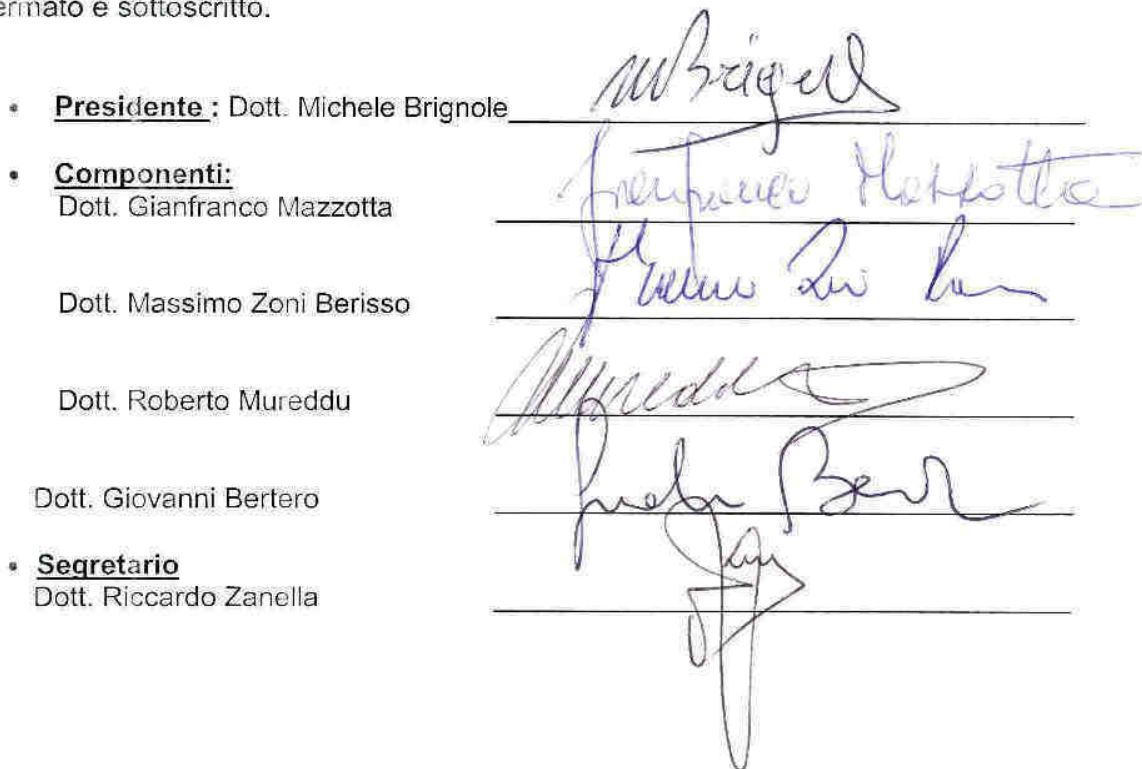 ermato e sottoscritto.
• Presidente : Dott. Michele Brignole
• Componenti:
Dott. Gianfranco Mazzotta
Gianfranco Mazzotta
Dott. Massimo Zoni Berisso
Dott. Roberto Mureddu
Mureddu
Dott. Giovanni Bertero
• Segretario
Dott. Riccardo Zanella